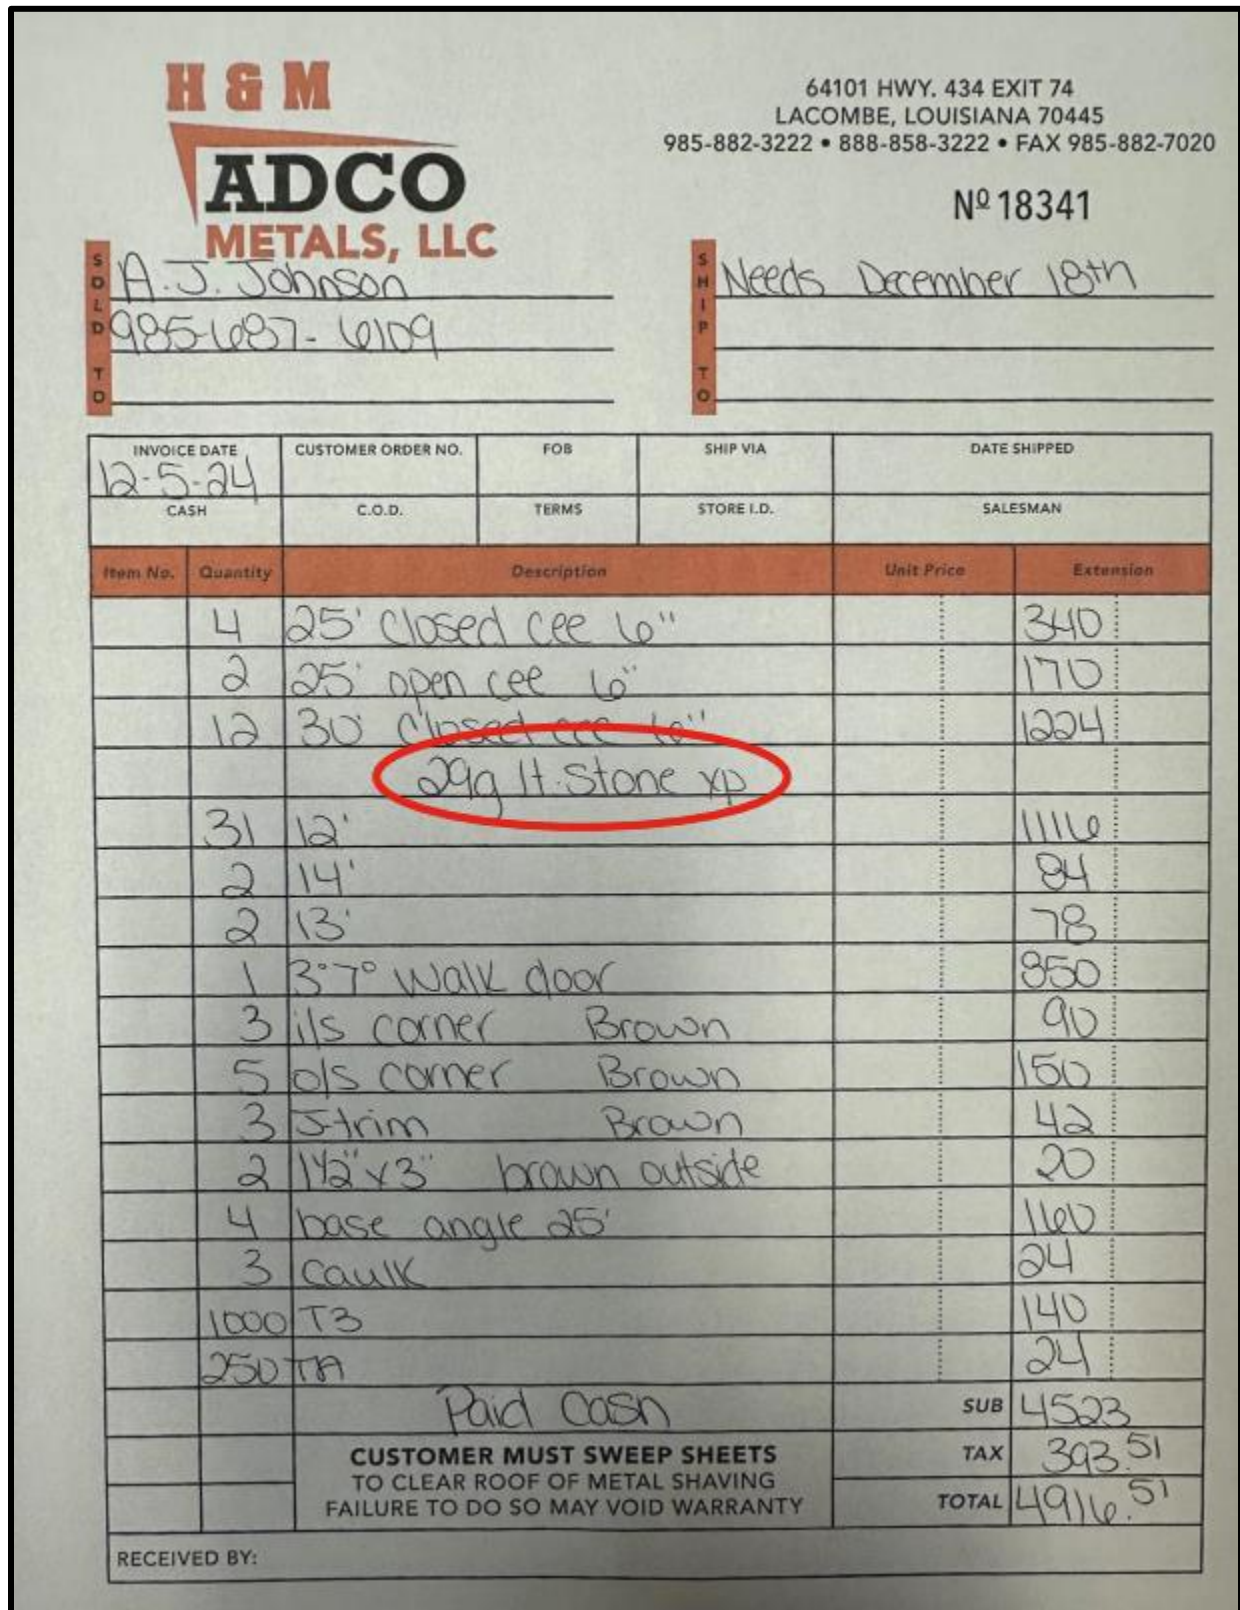 H & M
ADCO
METALS, LLC
64101 HWY. 434 EXIT 74
LACOMBE, LOUISIANA 70445
985-882-3222 • 888-858-3222 • FAX 985-882-7020
Nº 18341
SOLD TO
A.J. Johnson
985-687-6109
SHIP TO
Needs December 18th
INVOICE DATE CUSTOMER ORDER NO. FOB SHIP VIA DATE SHIPPED
12-5-24
CASH C.O.D. TERMS STORE I.D. SALESMAN
Item No. Quantity Description Unit Price Extension
4 25' Closed cee 6" 340
2 25' open cee 6" 170
12 30' Closed cee 6" 1224
29g lt. Stone xp
31 12' 1116
2 14' 84
2 13' 78
1 3°7° Walk door 850
3 i/s corner Brown 90
5 o/s corner Brown 150
3 J-trim Brown 42
2 1½"x3" brown outside 20
4 base angle 25' 160
3 Caulk 24
1000 T3 140
250 TA 24
Paid Cash SUB 4523
CUSTOMER MUST SWEEP SHEETS TAX 393.51
TO CLEAR ROOF OF METAL SHAVING
FAILURE TO DO SO MAY VOID WARRANTY TOTAL 4916.51
RECEIVED BY: